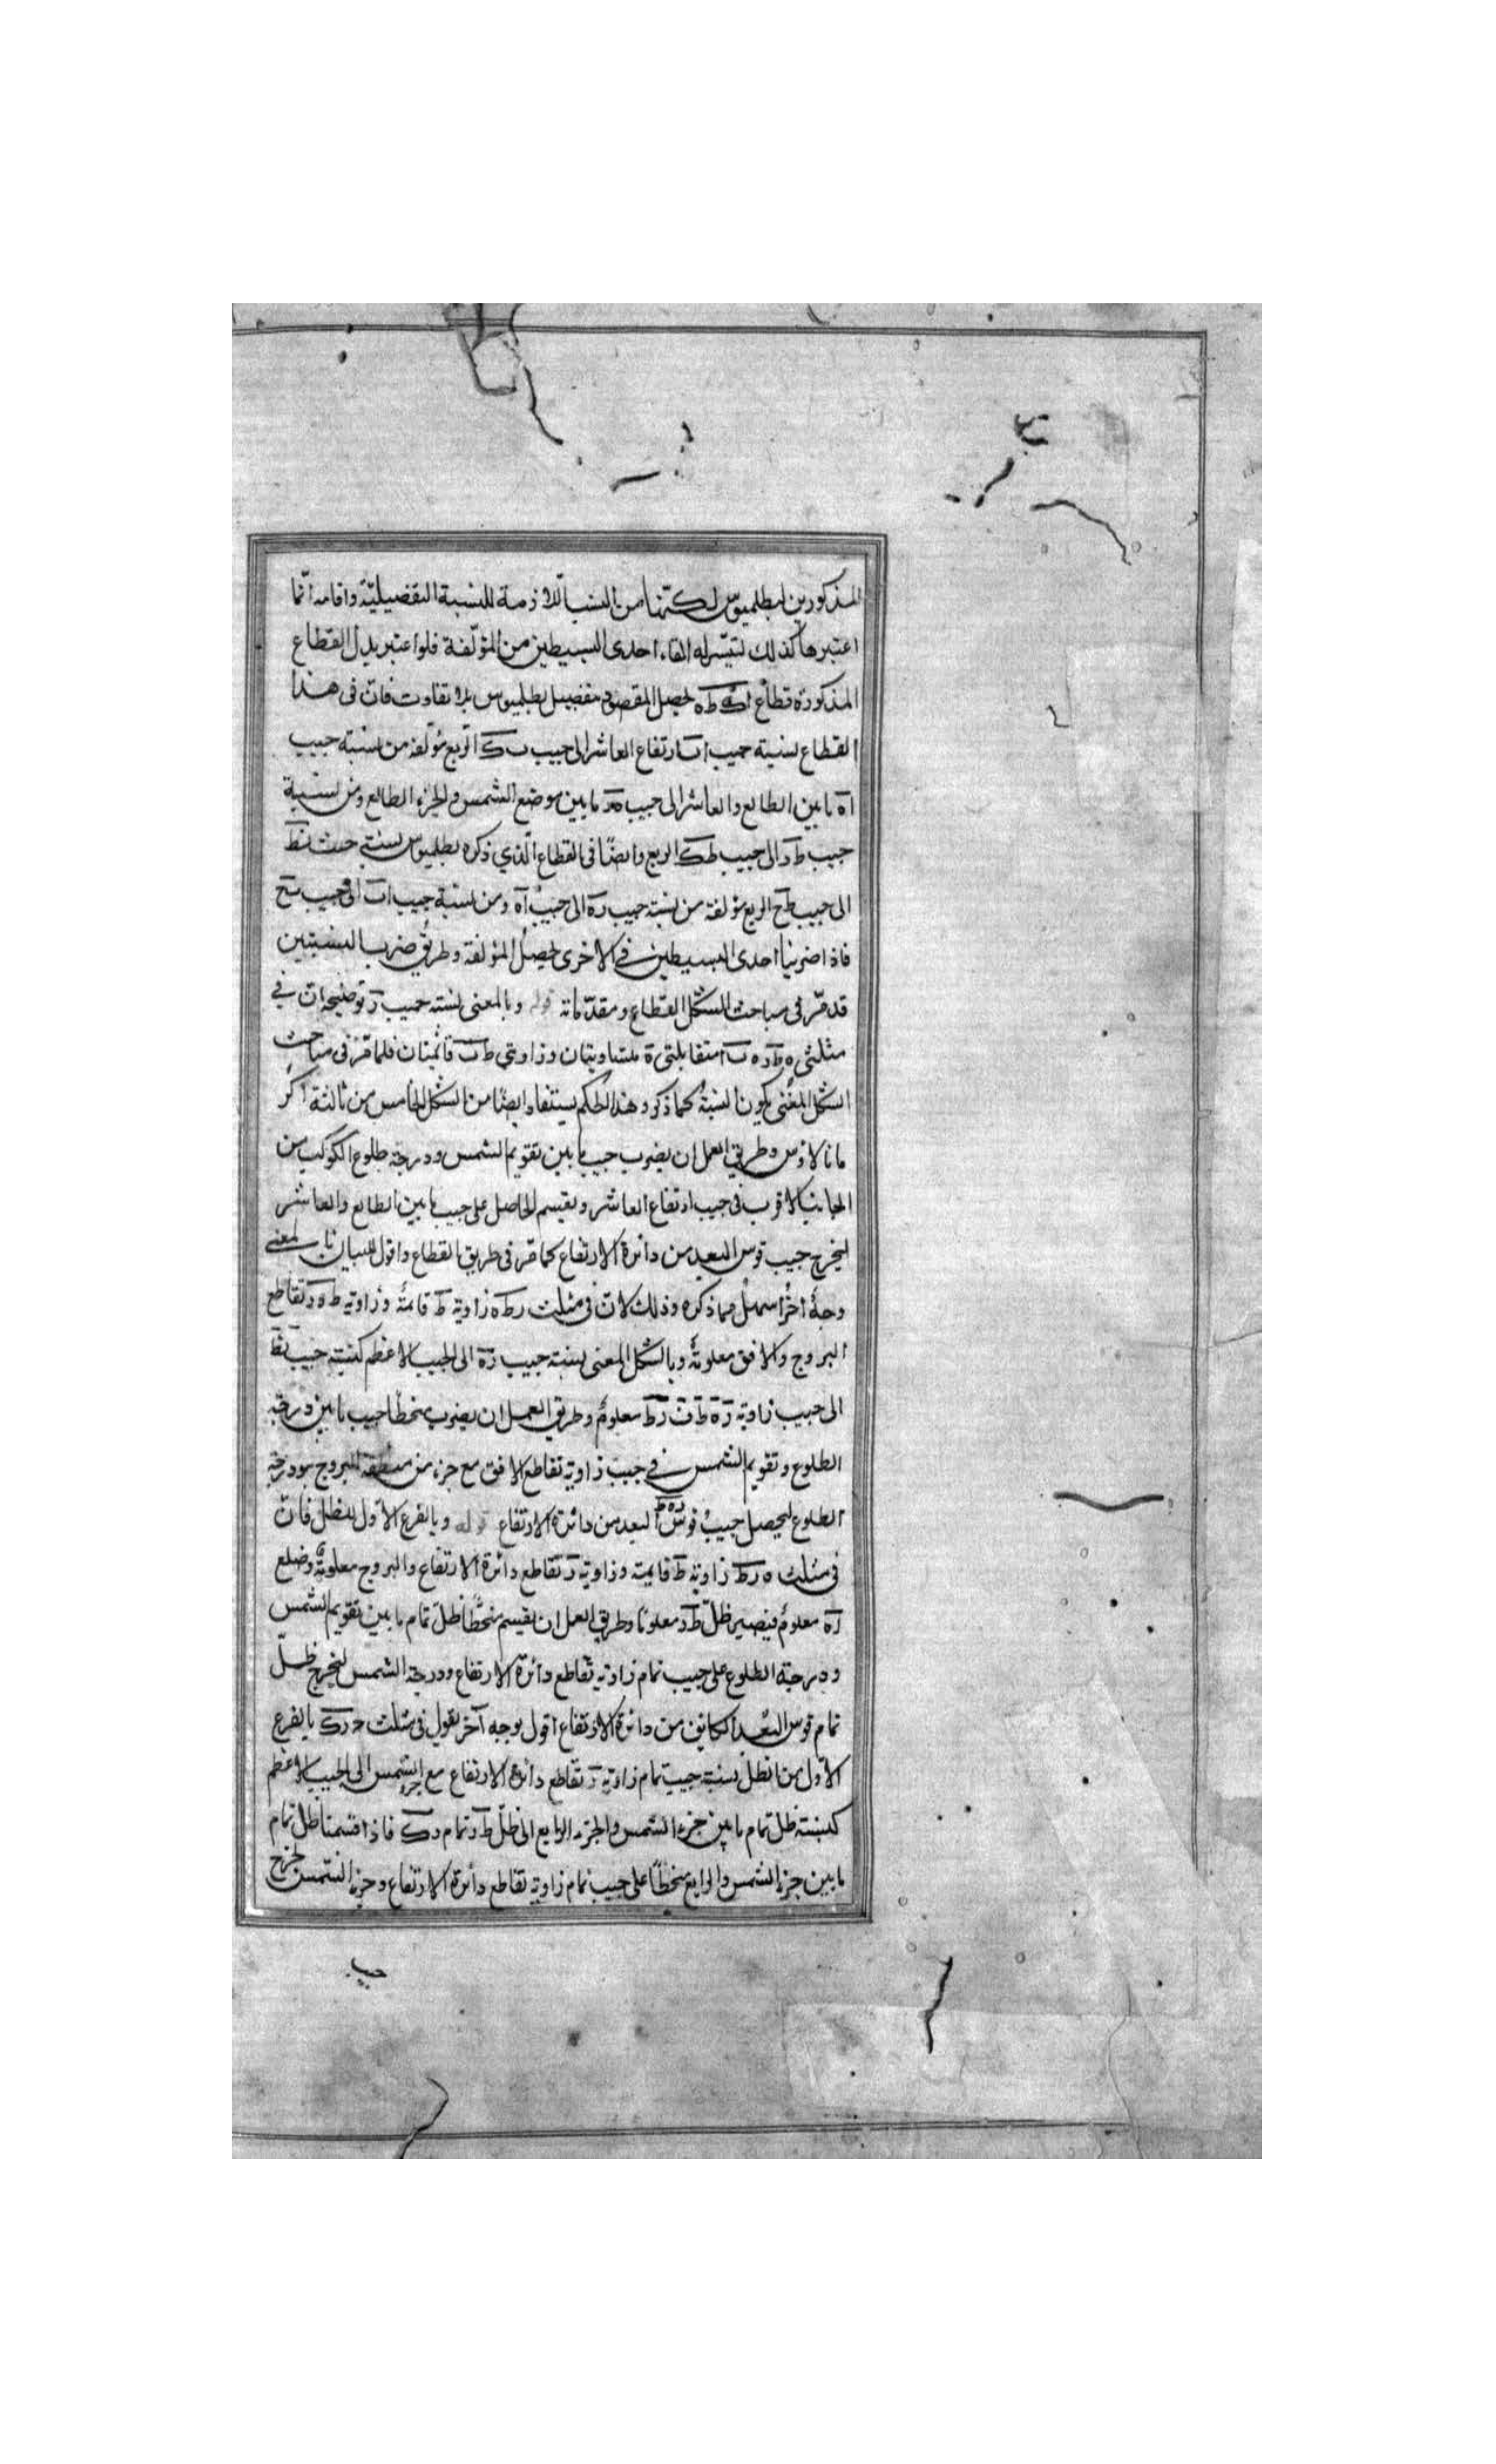 المذكورين لبطلميوس لكنها من النسب اللازمة للنسبة التفضيلية واقامه انما
اعتبرها كذلك لتيسر له القاء احدى البسيطين من المؤلفة فلو اعتبر بدل القطاع
المذكورة قطاع اكه طه لحصل المقصود بتفصيل بطلميوس بلا تفاوت فان فى هذا
القطاع نسبة جيب اب ارتفاع العاشر الى جيب ب ك الربع مؤلفة من نسبة جيب
اه ما بين الطالع والعاشر الى جيب هز ما بين موضع الشمس والجزء الطالع ومن نسبة
جيب طز الى جيب طك الربع وايضا فى القطاع الذي ذكره بطلميوس نسبة جيب نط
الى جيب طح الربع مؤلفة من نسبة جيب زه الى جيب اه ومن نسبة جيب اب الى جيب بح
فاذا ضربنا احدى البسيطين في الاخرى لحصل المؤلفة وطريق ضرب النسبتين
قد مر فى مباحث الشكل القطاع ومقدماته قوله وبالمغنى نسبة جيب ز توضيحه ان في
مثلثى ه طز ه ب ا متقابلتى ه متساويتان وزاويتي ط ب قائمتان فلما مر فى مباحث
الشكل المغنى يكون النسبة كما ذكر وهذا الحكم يستفاد ايضا من الشكل الخامس من ثالثة اكر
مانالاوس وطريق العمل ان يضرب جيب ما بين تقويم الشمس ودرجة طلوع الكوكب من
الجانب الاقرب فى جيب ارتفاع العاشر ويقسم الحاصل على جيب ما بين الطالع والعاشر
ليخرج جيب قوس البعد من دائرة الارتفاع كما مر فى طريق القطاع واقول للبيان بالمغنى
وجه اخر اسهل مما ذكره وذلك لان فى مثلث زطه زاوية ط قائمة وزاوية طه ز تقاطع
البروج والافق معلومة وبالشكل المغنى نسبة جيب زه الى الجيب الاعظم كنسبة جيب زط
الى جيب زاوية زه ط ف زط معلوم وطريق العمل ان يضرب منحطا جيب ما بين درجة
الطلوع وتقويم الشمس في جيب زاوية تقاطع الافق مع جزء من منطقة البروج بدرجة
الطلوع ليحصل جيب قوس البعد من دائرة الارتفاع قوله وبالفرع الاول للظل فان
فى مثلث ه زط زاوية ط قايمة وزاوية ز تقاطع دائرة الارتفاع والبروج معلومة وضلع
زه معلوم فيصير ظل طز معلوما وطريق العمل ان يقسم منحطا ظل تمام ما بين تقويم الشمس
ودرجة الطلوع على جيب تمام زاوية تقاطع دائرة الارتفاع ودرجة الشمس ليخرج ظل
تمام قوس البعد الكاين من دائرة الارتفاع اقول بوجه آخر نقول فى مثلث ح زك بالفرع
الاول من الظل نسبة جيب تمام زاوية ز تقاطع دائرة الارتفاع مع جزء الشمس الى الجيب الاعظم
كنسبة ظل تمام ما بين جزء الشمس والجزء الرابع الى ظل طز تمام زك فاذا قسمنا ظل تمام
ما بين جزء الشمس والرابع منحطا على جيب تمام زاوية تقاطع دائرة الارتفاع وجزء الشمس لخرج